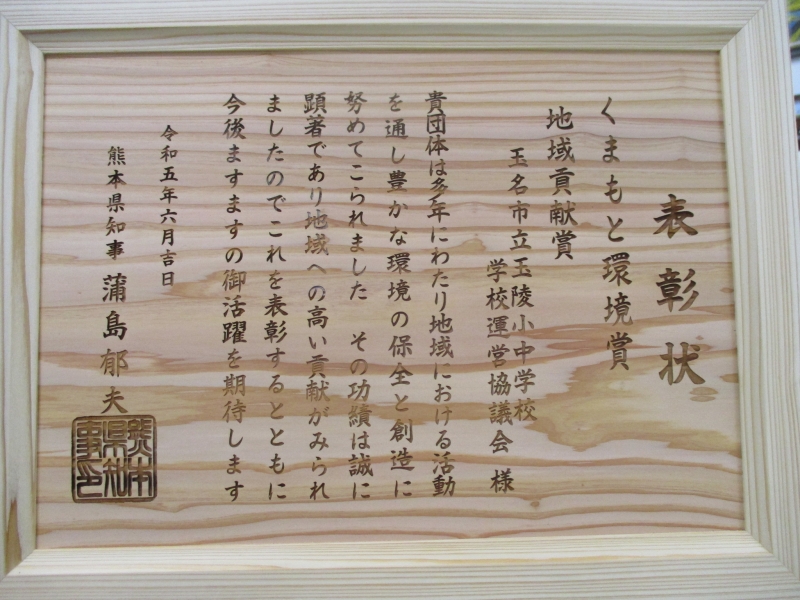 表彰状
くまもと環境賞
地域貢献賞
玉名市立玉陵小中学校
学校運営協議会 様
貴団体は多年にわたり地域における活動
を通し豊かな環境の保全と創造に
努めてこられました その功績は誠に
顕著であり地域への高い貢献がみられ
ましたのでこれを表彰するとともに
今後ますますの御活躍を期待します
令和五年六月吉日
熊本県知事 蒲島郁夫
熊本県知事印